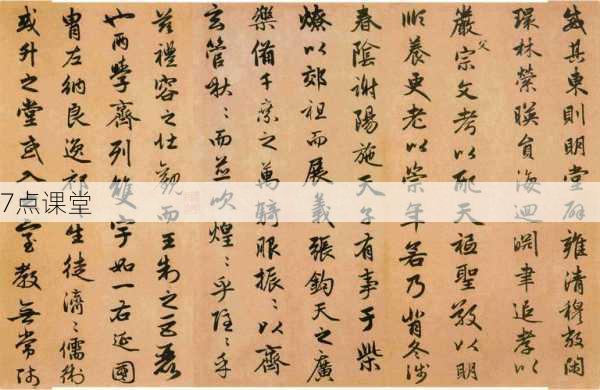 威其東則明堂辟雍清穆敞閑
環林縈暎員海迴淵聿追孝以
嚴父宗文考以配天祗聖敬以明
順養更老以崇年若乃背冬涉
春陰謝陽施天子有事于柴
燎以郊祖而展義張鈞天之廣
樂備千乘之萬騎服振〻以齊
玄管啾〻而並吹煌〻乎隱〻乎
茲禮容之壯觀而王制之巨麗
也兩學齊列雙宇如一右延國
冑左納良逸祁〻生徒濟〻儒術
或升之堂或入之室教無常師
7点课堂